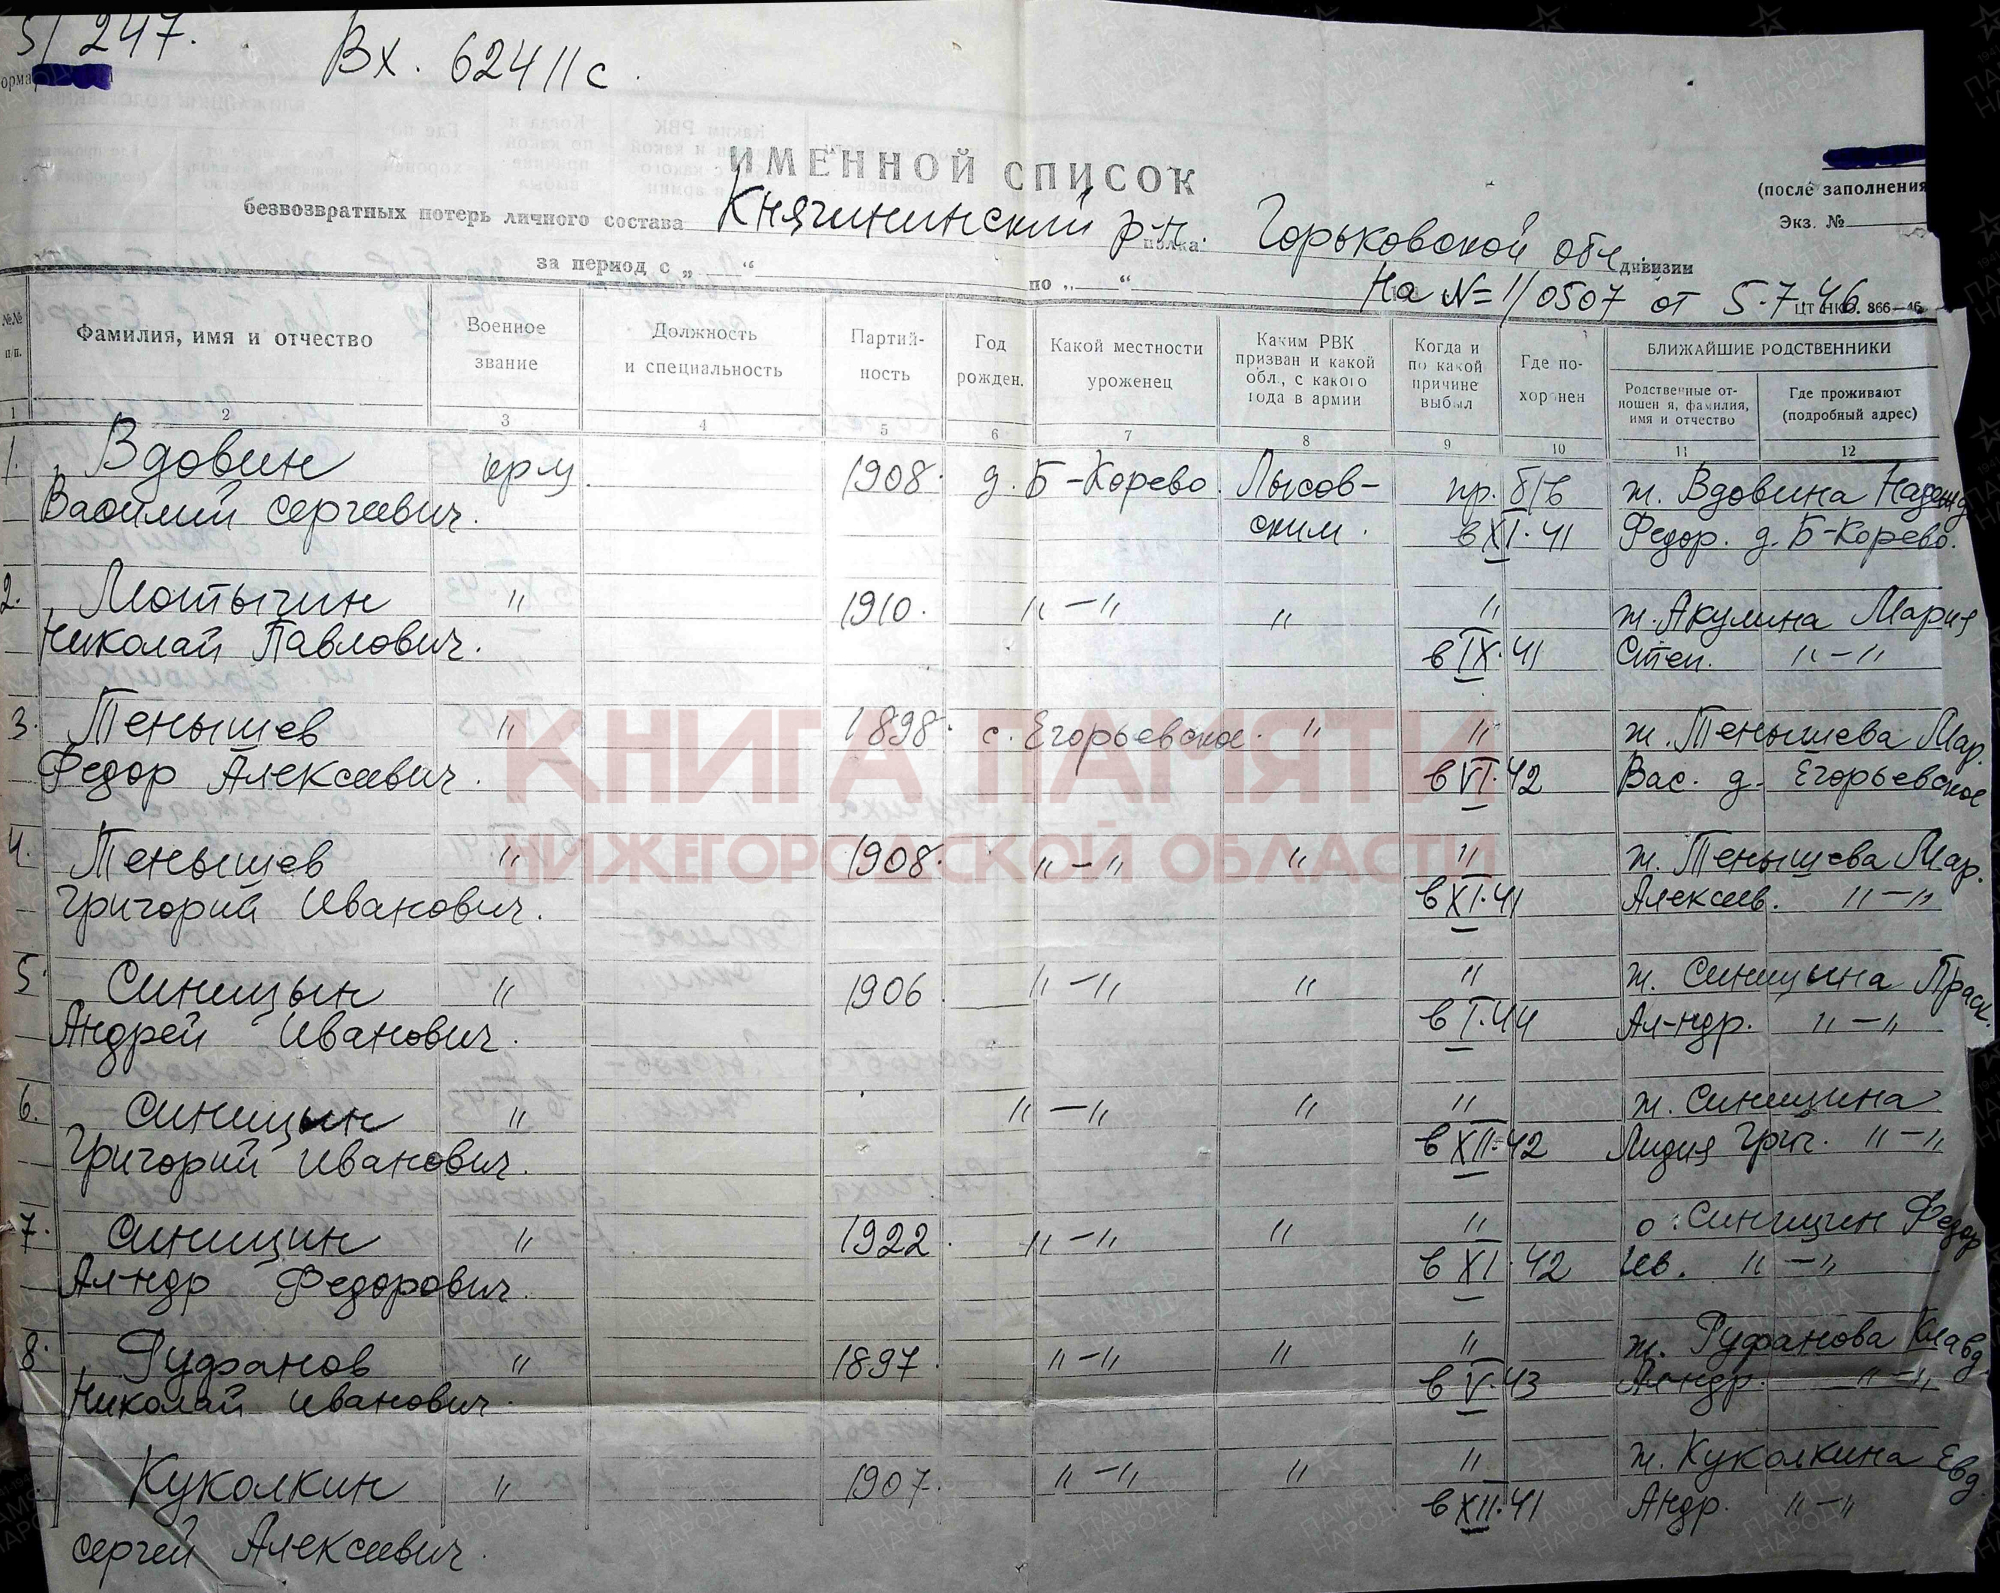 5/247.
Вх. 62411с.
ИМЕННОЙ СПИСОК
безвозвратных потерь личного состава Княгининский р-н. полка Горьковской обл. дивизии
(после заполнения
Экз. №
за период с „ “ по „ “
На №=11/0507 от 5.7.46
ЦТ НКО. 866—46
№№ п/п.
Фамилия, имя и отчество
Военное звание
Должность и специальность
Партийность
Год рожден.
Какой местности уроженец
Каким РВК призван и какой обл., с какого года в армии
Когда и по какой причине выбыл
Где похоронен
БЛИЖАЙШИЕ РОДСТВЕННИКИ
Родственные отношения, фамилия, имя и отчество
Где проживают (подробный адрес)
1 2 3 4 5 6 7 8 9 10 11 12
1. Вдовин кр-ц 1908. д. Б-Корево. Лысов- пр. б/в ж. Вдовина Надежд.
Василий Сергеевич. ским. в XI.41 Федор. д. Б-Корево.
2. Мотычин " 1910. "—" " " ж. Акулина Мария
Николай Павлович. в IX.41 Степ. "—"
3. Тенышев " 1898. с. Егорьевское. " " ж. Тенышева Мар.
Федор Алексеевич. в VI.42 Вас. д. Егорьевское
4. Тенышев " 1908. "—" " " ж. Тенышева Мар.
Григорий Иванович. в XI.41 Алексеев. "—"
5. Синицын " 1906 "—" " " ж. Синицына Праск.
Андрей Иванович. в I.44 Ал-ндр. "—"
6. Синицын " "—" " " ж. Синицина
Григорий Иванович. в XII.42 Лидия Григ. "—"
7. Синицин " 1922. "—" " " о. Синицин Федор
Ал-ндр Федорович. в XI.42 Ив. "—"
8. Руфанов " 1897. "—" " " ж. Руфанова Клавд.
Николай Иванович. в V.43 Ал-ндр. "—"
Куколкин " 1907. "—" " " ж. Куколкина Евд.
Сергей Алексеевич. в XII.41 Андр. "—"
КНИГА ПАМЯТИ
НИЖЕГОРОДСКОЙ ОБЛАСТИ